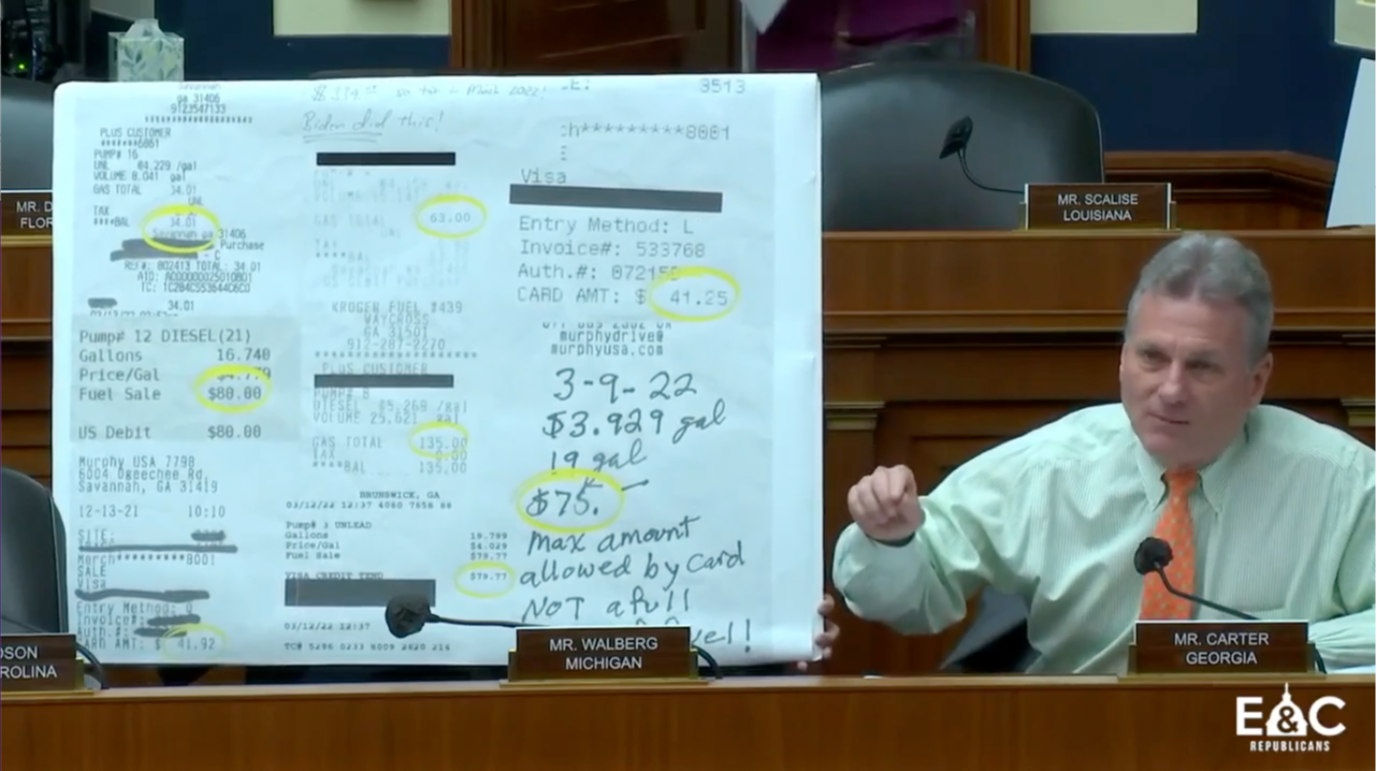 Savannah
ga 31406
9123547133
PLUS CUSTOMER
*******6861
PUMP# 16
UNL $4.229 /gal
VOLUME 8.041 gal
GAS TOTAL 34.01
UNL
TAX
****BAL 34.01
Savannah ga 31406
Purchase
- C
REF#: 802413 TOTAL: 34.01
34.01
Pump# 12 DIESEL(21)
Gallons 16.740
Price/Gal $4.779
Fuel Sale $80.00
US Debit $80.00
Murphy USA 7798
6004 Ogeechee Rd.
Savannah, GA 31419
12-13-21 10:10
SITE:
Merch*********8001
SALE
Visa
Entry Method:
Invoice#:
Auth.#:
CARD AMT: $ 41.92
Biden did this!
GAS TOTAL 63.00
TAX
****BAL
KROGER FUEL #439
WAYCROSS
GA 31501
912-287-2270
PLUS CUSTOMER
PUMP# 8
DIESEL $5.269 /gal
VOLUME 25.621 gal
GAS TOTAL 135.00
TAX 0.00
****BAL 135.00
BRUNSWICK, GA
03/12/22 12:37
Pump# 3 UNLEAD
Gallons 19.799
Price/Gal $4.029
Fuel Sale $79.77
VISA CREDIT TEND $79.77
03/12/22 12:37
TC# 5296 0233 6009 2620 214
E: 3513
ch*********8001
Visa
Entry Method: L
Invoice#: 533768
Auth.#:
CARD AMT: $ 41.25
murphydrive@
murphyusa.com
3-9-22
$3.929 gal
19 gal
$75.
max amount
allowed by card
NOT a full
MR. D
FLOR
MR. SCALISE
LOUISIANA
DSON
ROLINA
MR. WALBERG
MICHIGAN
MR. CARTER
GEORGIA
E&C
REPUBLICANS